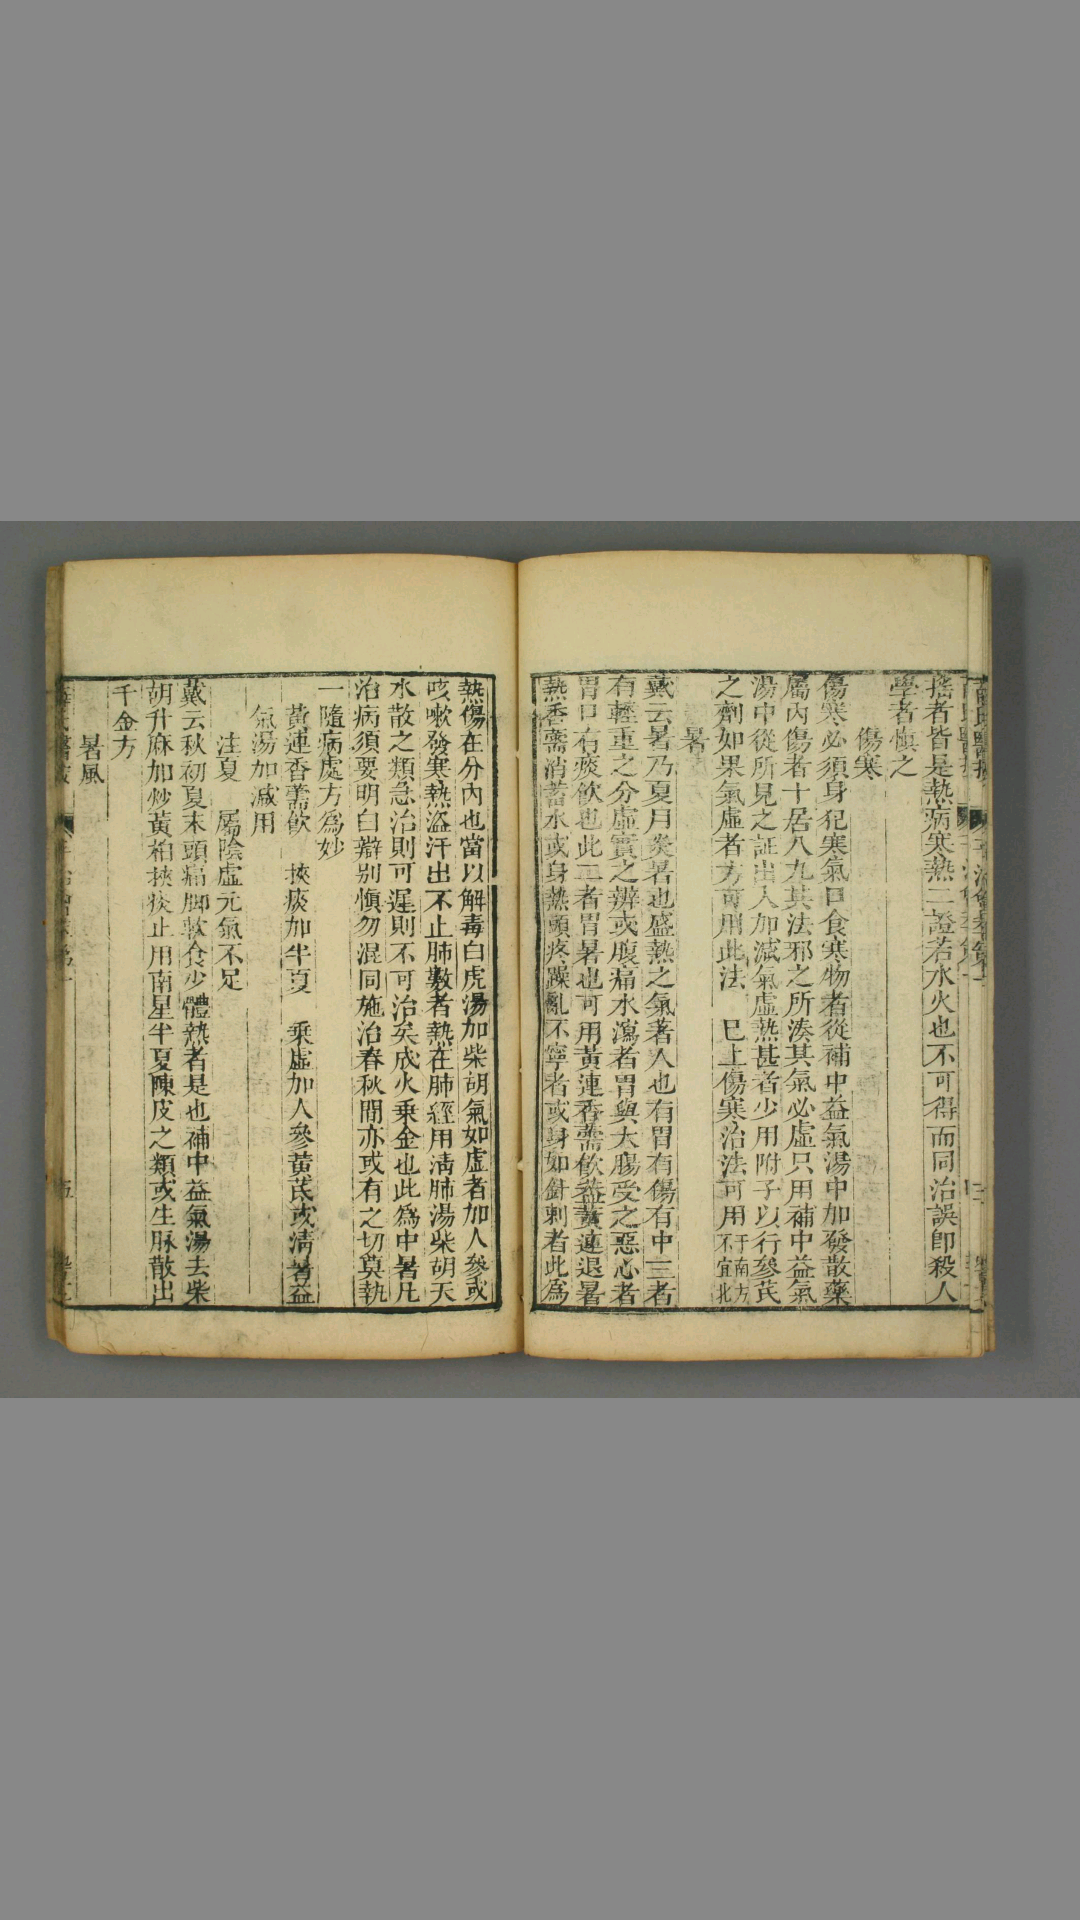 搖者皆是熱病寒熱二證若水火也不可得而同治誤卽殺人
學者愼之
傷寒
傷寒必須身犯寒氣口食寒物者從補中益氣湯中加發散藥
屬內傷者十居八九其法邪之所湊其氣必虛只用補中益氣
湯中從所見之証出入加減氣虛熱甚者少用附子以行參芪
之劑如果氣虛者方可用此法 已上傷寒治法可用于南方不宜北
暑
戴云暑乃夏月炎暑也盛熱之氣著人也有冒有傷有中三者
有輕重之分虛實之辨或腹痛水瀉者胃與大腸受之惡心者
胃口有痰飲也此二者冒暑也可用黃連香薷飲葢黃連退暑
熱香薷消蓄水或身熱頭疼躁亂不寧者或身如針刺者此爲
熱傷在分內也當以解毒白虎湯加柴胡氣如虛者加人參或
咳嗽發寒熱盜汗出不止肺數者熱在肺經用淸肺湯柴胡天
水散之類急治則可遲則不可治矣成火乘金也此爲中暑凡
治病須要明白辯别愼勿混同施治春秋間亦或有之切莫執
一隨病處方爲妙
黃連香薷飲 挾痰加半夏 乘虛加人參黃芪或淸暑益
氣湯加減用
注夏 屬陰虛元氣不足
戴云秋初夏末頭痛脚軟食少體熱者是也補中益氣湯去柴
胡升麻加炒黃柏挾痰止用南星半夏陳皮之類或生脉散出
千金方
暑風